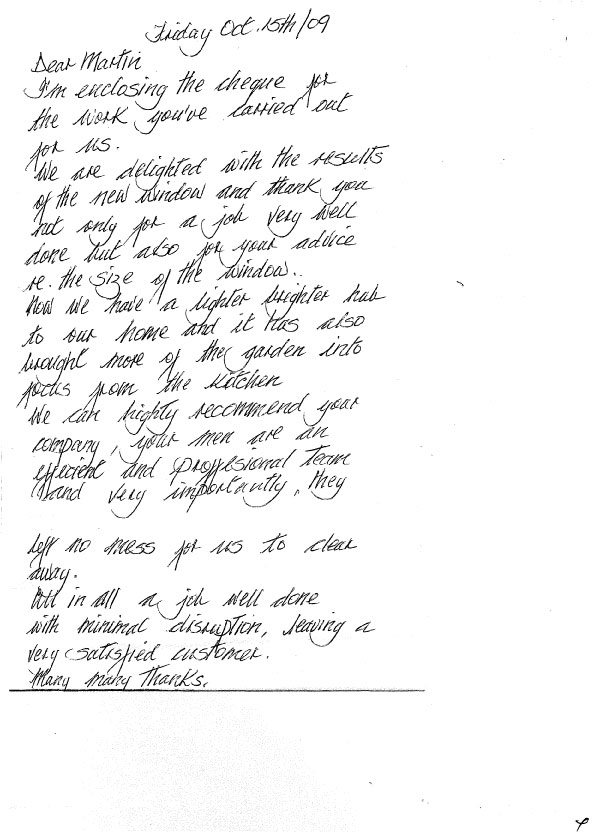 Friday Oct. 15th/09
Dear Martin
I'm enclosing the cheque for
the work you've carried out
for us.
We are delighted with the results
of the new window and thank you
not only for a job very well
done but also for your advice
re. the size of the window..
Now we have a lighter brighter hub
to our home and it has also
brought more of the garden into
focus from the kitchen
We can highly recommend your
company, your men are an
efficient and proffesional team
and very importantly, they
left no mess for us to clear
away.
All in all a job well done
with minimal disruption, leaving a
very satisfied customer.
Many many thanks.